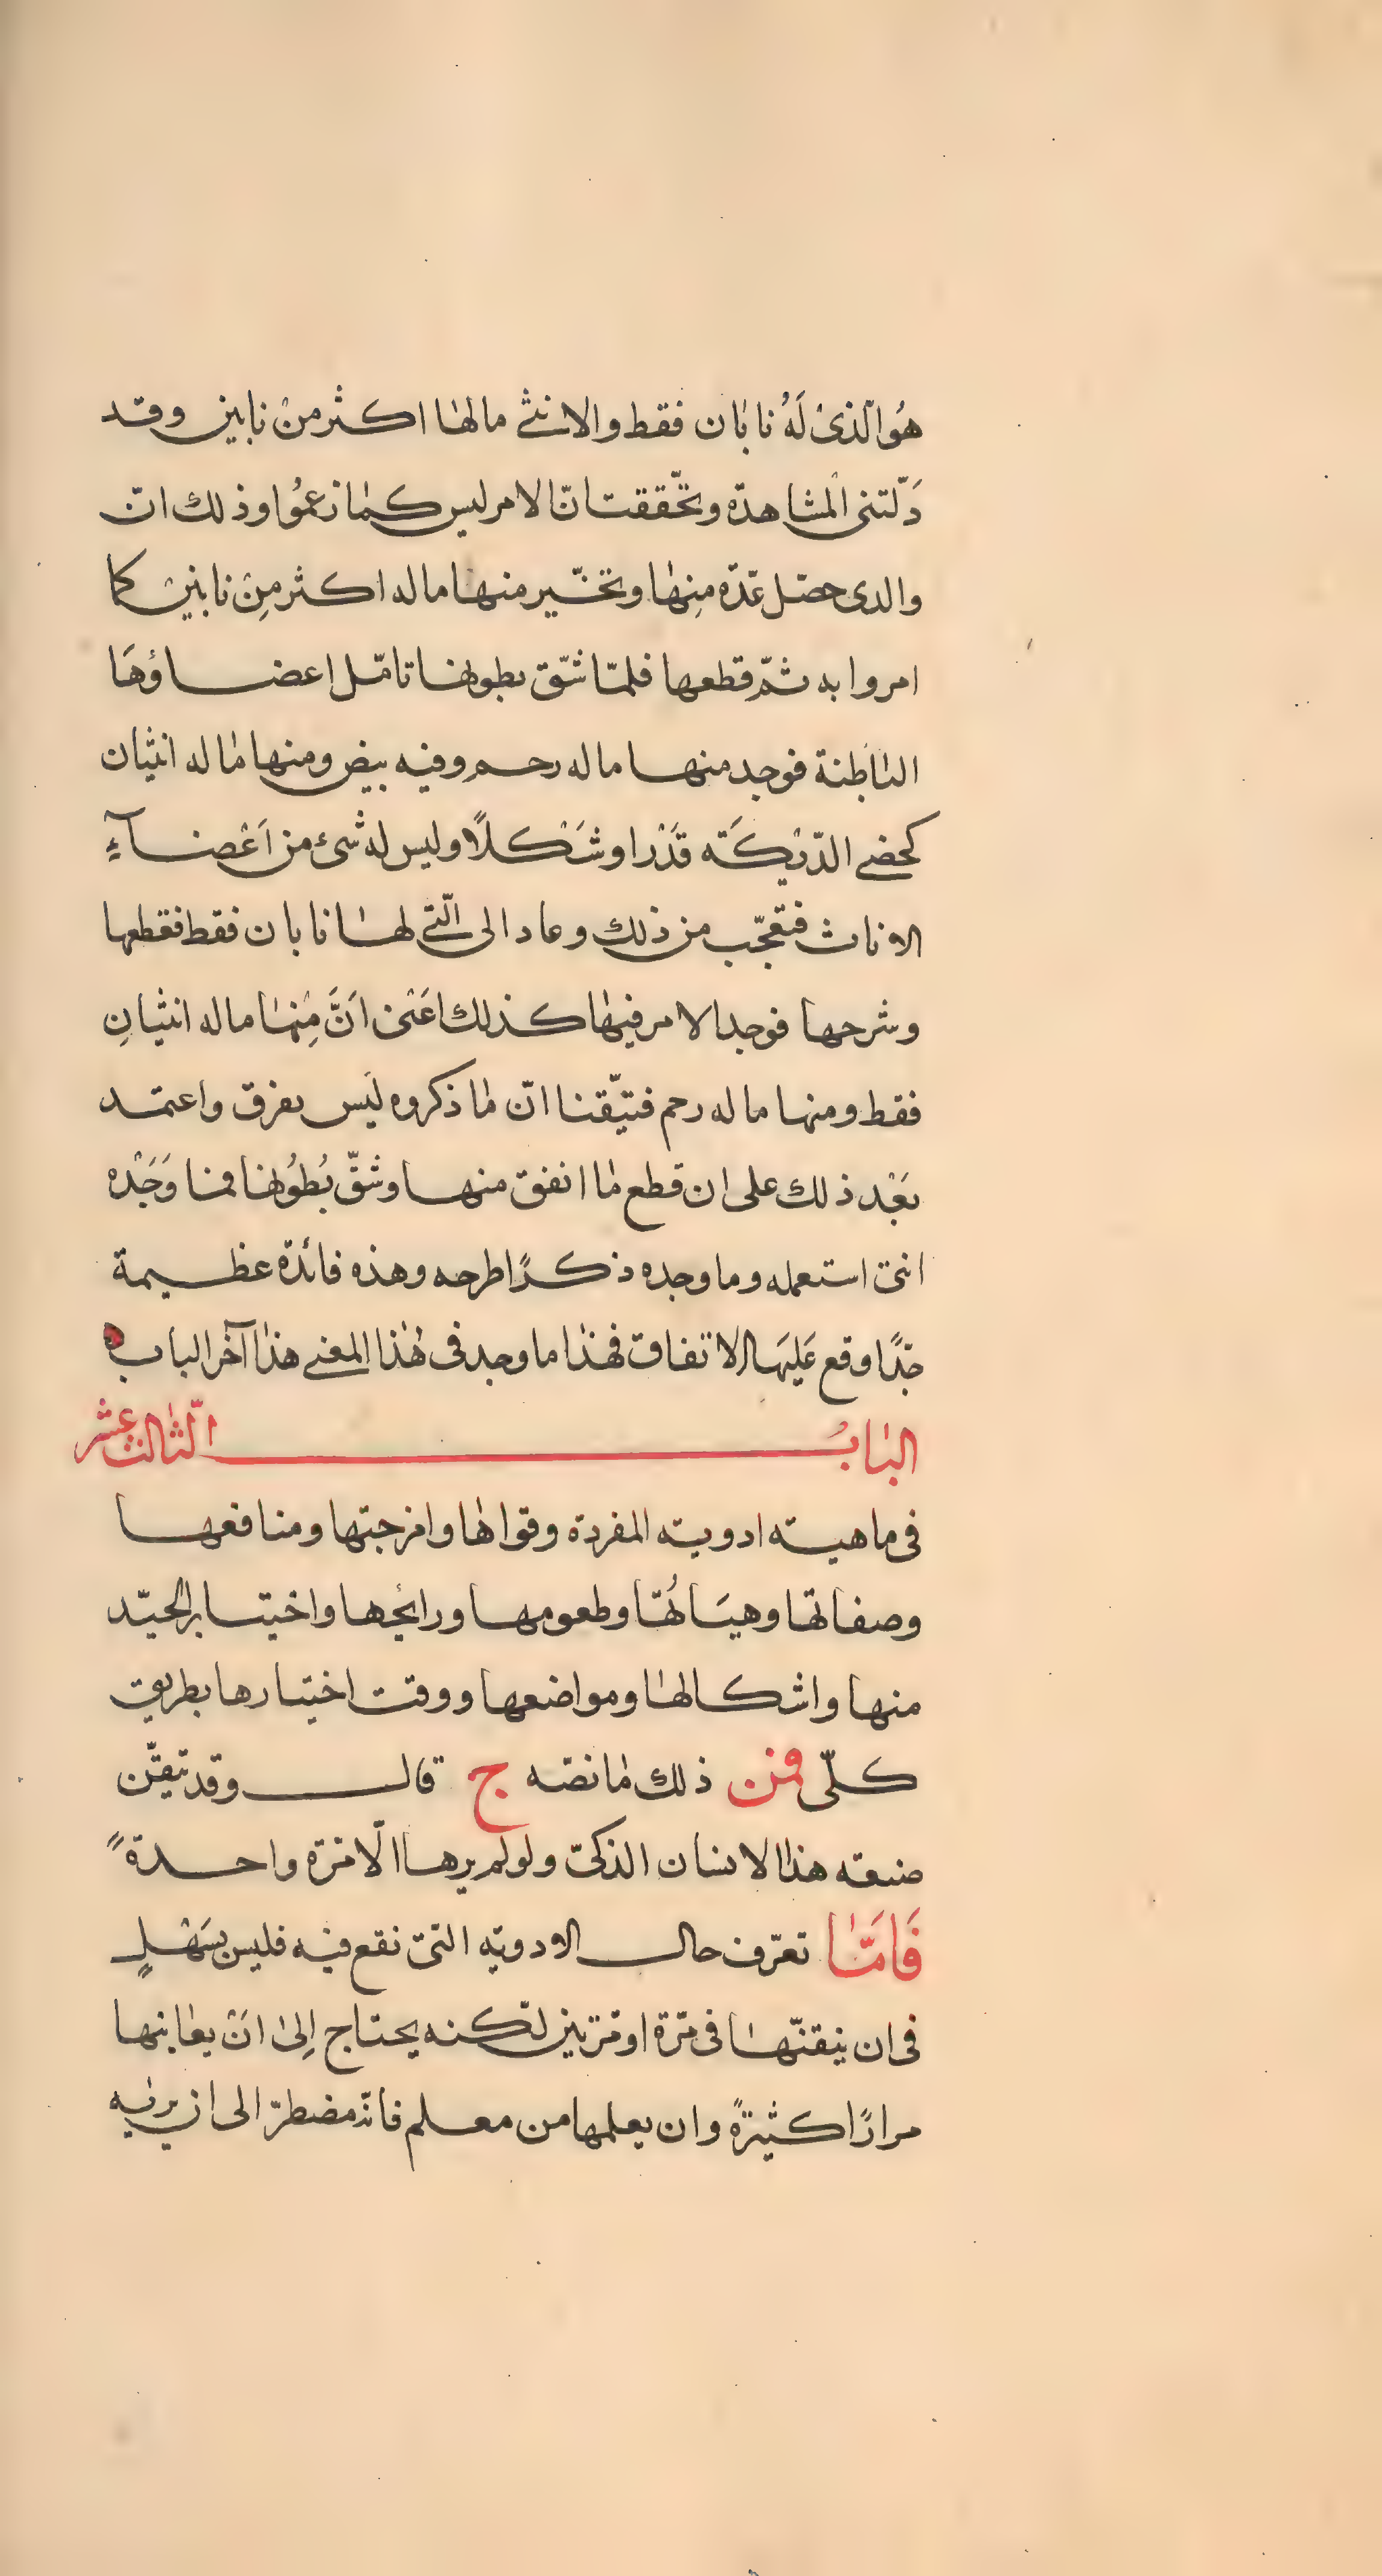 هُوَ الّذىْ لَهُ نابان فقط والانثى مالها اكثر منْ نابين وقد
دَلّتنى المْشاهدة وتحّققت انّ الامر ليس كما زعمُوا وذلك انّ
والدى حصّل عّدة مِنها وتخّير منها ماله اكثر مِنْ نابين كما
امروا به ثمّ قطعها فلمّا شّق بطونها تامّل اعضاؤهَا
الباطنة فوجد منها ماله رحم وفيه بيض ومنها ما له انثيان
كخصى الدّيْكَة قَدْرا وشَكلًا وليس له شىء من اَعْضآءِ
الاناث فتعجّب من ذلك وعاد الى الّتى لها نابان فقط فقطعها
وشرحها فوجد الامر فيها كذلك اَعْنى اَنَّ مِنْها ماله انثيانِ
فقط ومنها ما له رحم فتيّقنا انّ ما ذكروه ليْس بفرق واعتمد
بَعْد ذلك على ان قطع ما اتفق منها وشقّ بُطوُنها فما وَجَدْه
انثى استعمله وما وجده ذكرًا طرحه وهذه فائدة عظيمة
جّدًا وقع عَليَها الاتفاق فهذا ما وجد فى هٰذا المعنى هذا آخر الباب
البٰابُ الّثالث عشر
فى ماهيته ادويته المفردة وقواها وامزجتها ومنافعها
وصفاتها وهيَاتُها وطعومها ورائحها واختبار الجيّد
منها واشكالها ومواضعها ووقت اختيارها بطريق
كلّى فمن ذلك ما نصّه ج قال وقد تيقّن
صنعه هذا الانسان الذكىّ ولو لم يرها الّا مرّة واحدةً
فَامَّا تعرّف حال الادويّه التى تقع فيه فليس بسَهْلٍ
فى ان يتقنّها فى مّرة او مّرتين لّكنه يحتاج اِلى انْ يعاينها
مرارًا كثيرةً وان يعلمها من معلم فانّه مضطرّ الى ان يريه